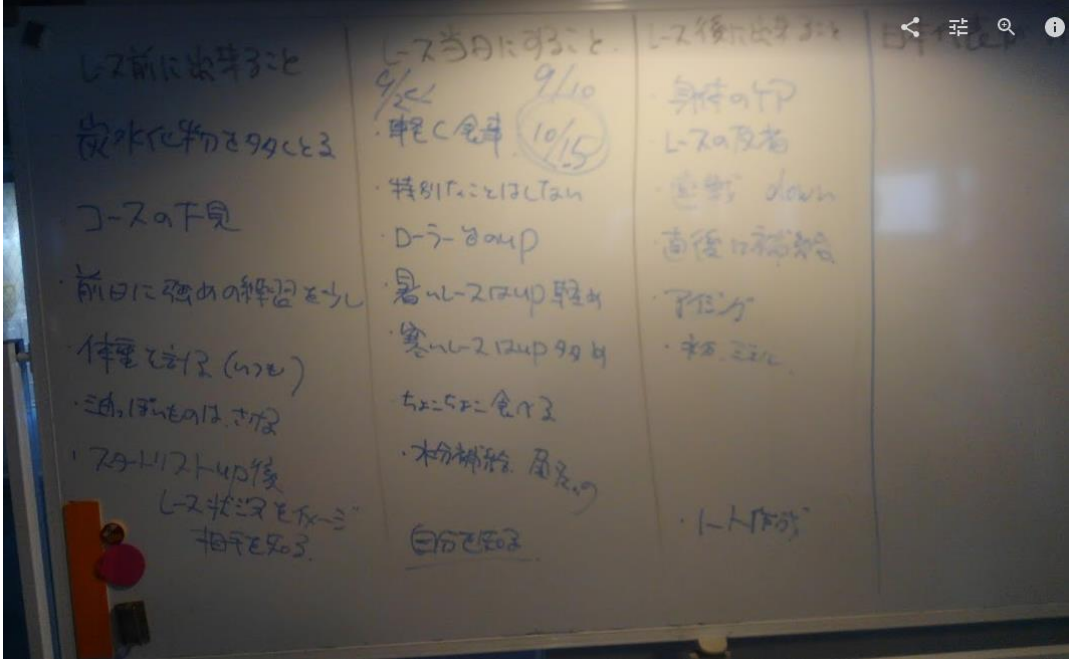 レース前に出来ること
炭水化物を多くとる
コースの下見
・前日に強めの練習を少し
・体重を計る(いつも)
・油っぽいものは、さける
・スタートリストup後
レース状況をイメージ
相手を知る.
レース当日にすること.
9/10
・軽く食事.
10/15
・特別なことはしない
・ローラーでのup
・暑いレースはup軽め
・寒いレースはup多め
ちょこちょこ食べる
・水分補給
自分を知る
レース後に出来ること
・身体のケア
レースの反省
down
・直後に補給
・アイシング
・ノート作成
日本代表